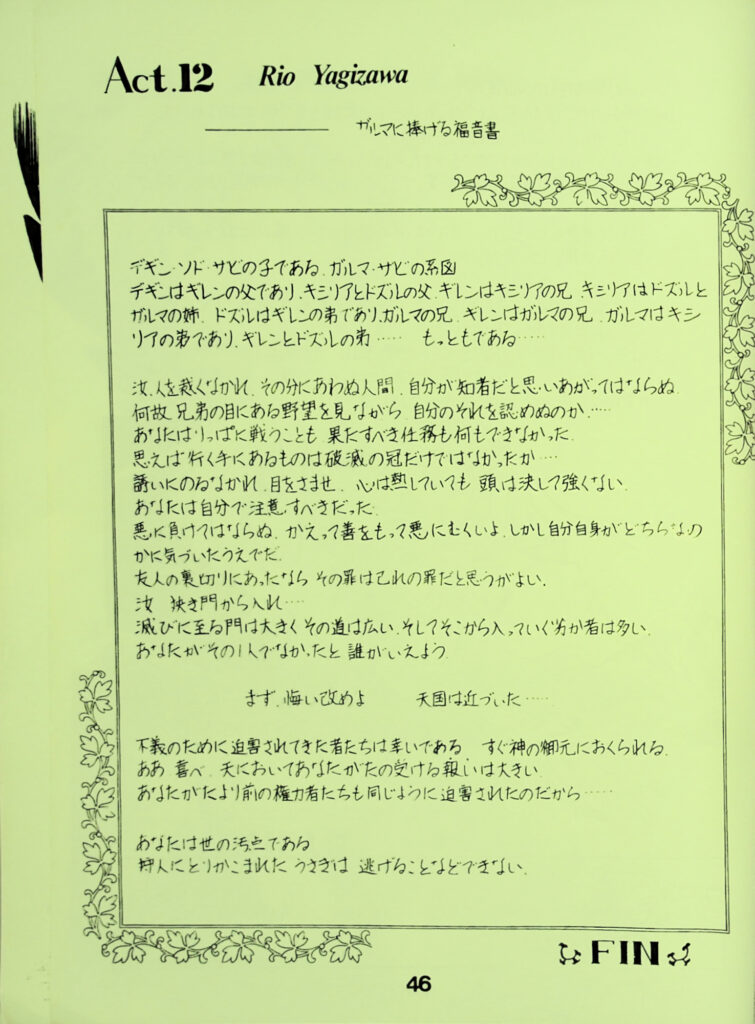 Act.12 Rio Yagizawa
ガルマに捧げる福音書
デギン・ソド・サビの子である、ガルマ・サビの系図
デギンはギレンの父であり、キシリアとドズルの父、ギレンはキシリアの兄、キシリアはドズルと
ガルマの姉、ドズルはギレンの弟であり、ガルマの兄、ギレンはガルマの兄、ガルマはキシ
リアの弟であり、ギレンとドズルの弟…… もっともである……
汝、人を裁くなかれ、その分にあわぬ人間、自分が知者だと思いあがってはならぬ
何故 兄弟の目にある野望を見ながら 自分のそれを認めぬのか……
あなたはりっぱに戦うことも 果たすべき任務も何もできなかった
思えば 行く手にあるものは破滅の冠だけではなかったか…
誘いにのるなかれ、目をさませ、心は熱していても 頭は決して強くない、
あなたは自分で注意すべきだった
悪に負けてはならぬ、かえって善をもって悪にむくいよ、しかし自分自身がどちらなの
かに気づいたうえでだ、
友人の裏切りにあったなら その罪は己れの罪だと思うがよい、
汝 狭き門から入れ…
滅びに至る門は大きく その道は広い、そしてそこから入っていく者は多い、
あなたがその1人でなかったと 誰がいえよう
まず、悔い改めよ 天国は近づいた……
不義のために迫害されてきた者たちは幸いである すぐ神の御元におくられる、
ああ 喜べ、天においてあなたがたの受ける報いは大きい
あなたがたより前の権力者たちも同じように迫害されたのだから……
あなたは世の汚点である
狩人にとりかこまれた うさぎは 逃げることなどできない、
FIN
46